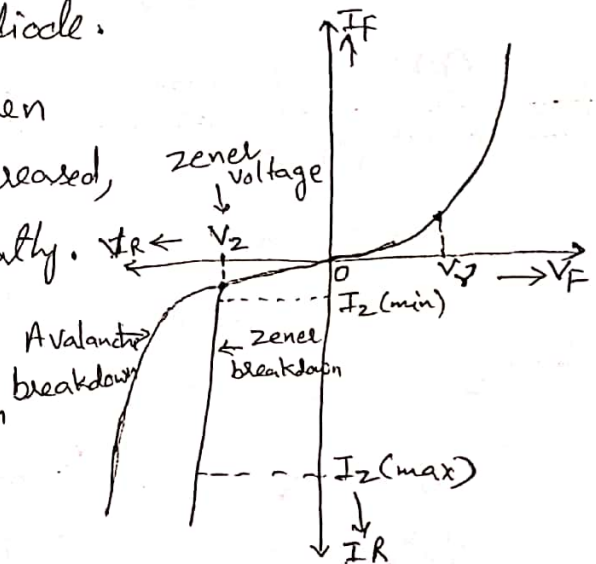 diode.
I_F
en
reased,
zener
voltage
atly. V_R ← V_Z
O
V_γ → V_F
I_Z (min)
Avalanche
breakdown
← zener
breakdown
I_Z (max)
I_R